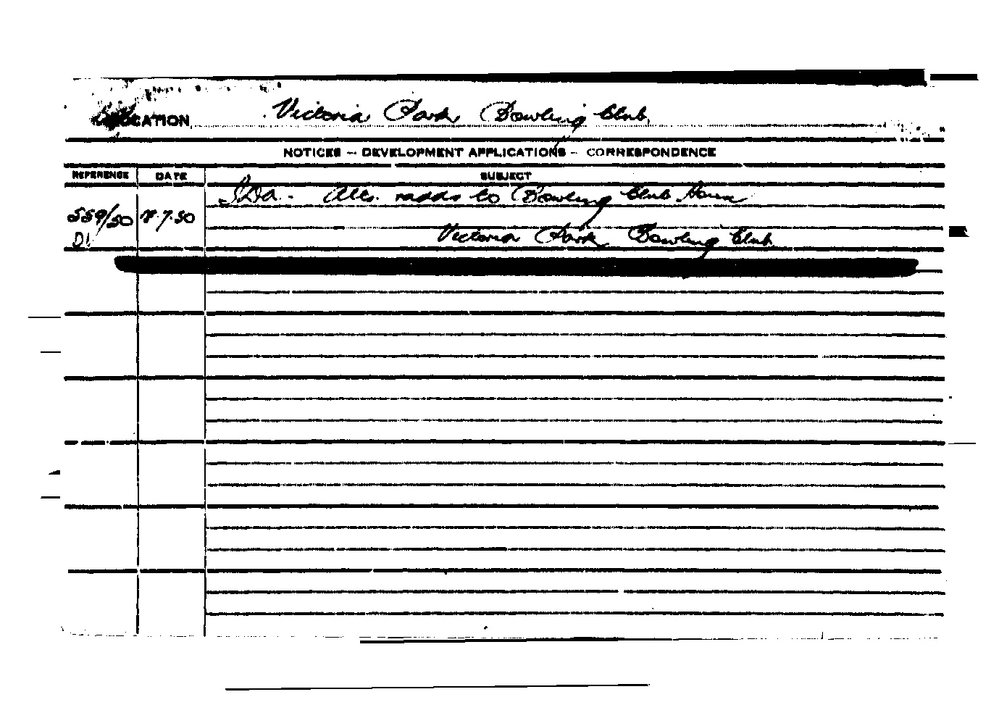 LOCATION Victoria Park Bowling Club.
NOTICES - DEVELOPMENT APPLICATIONS - CORRESPONDENCE
REFERENCE DATE SUBJECT
IDA. Alts. & adds to Bowling Club House
559/50 7.50
D1 Victoria Park Bowling Club